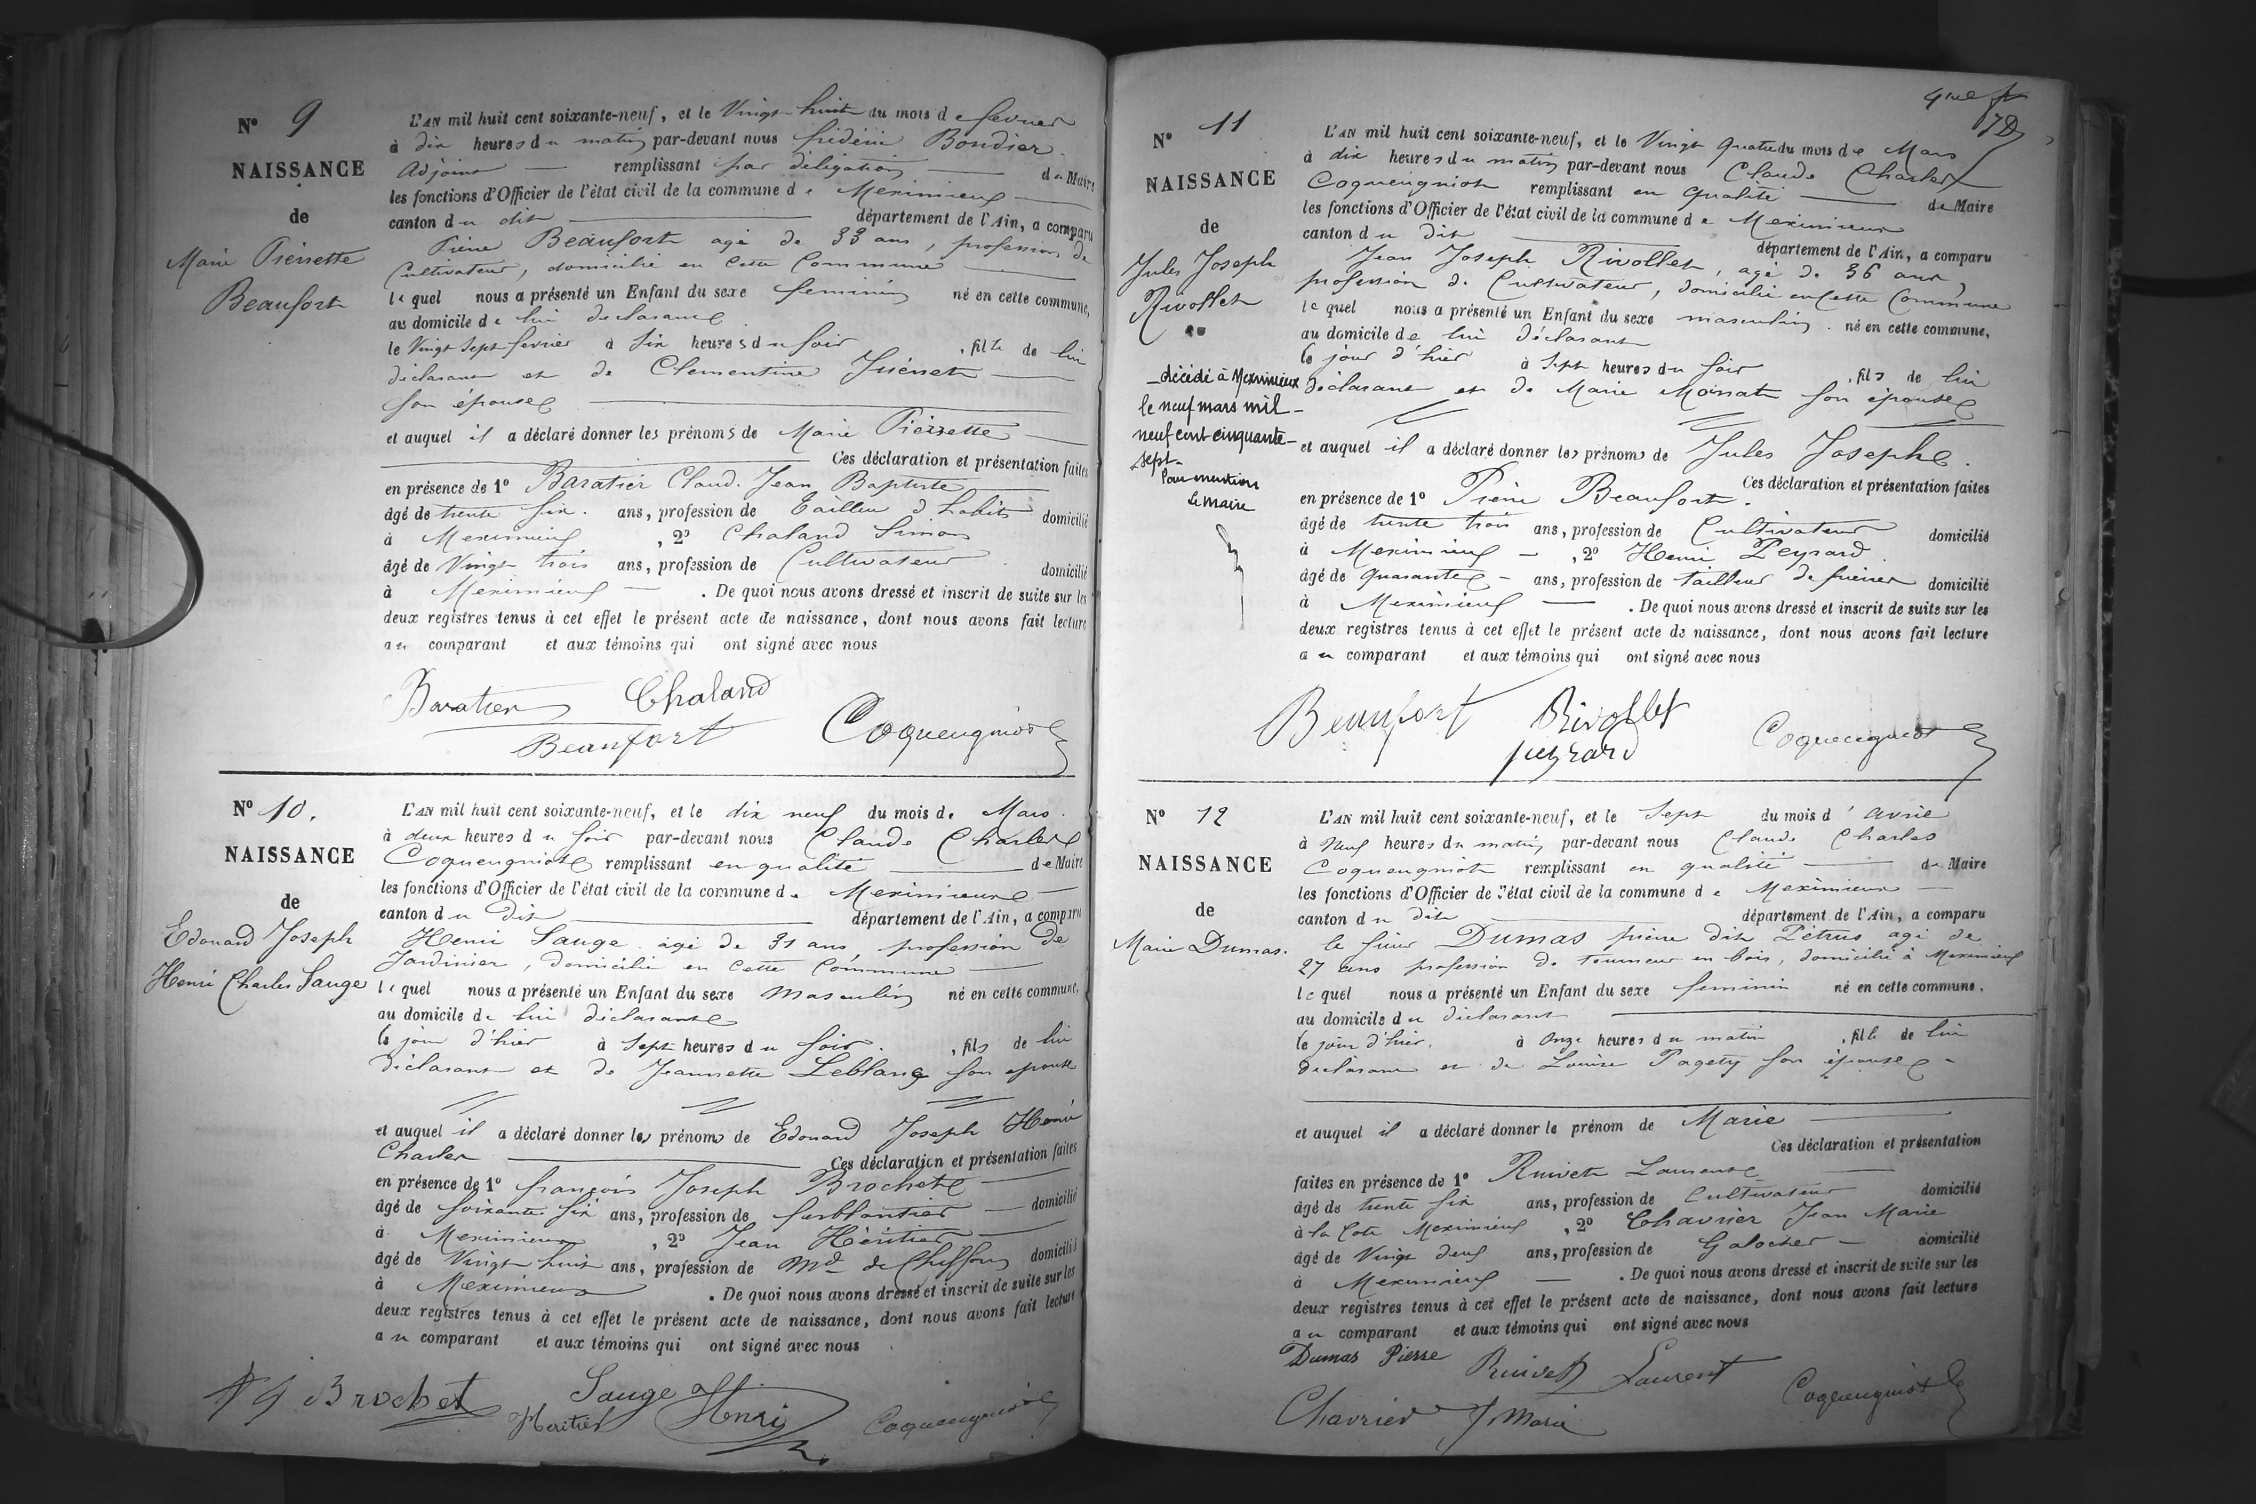 N° 9
NAISSANCE
de
Marie Pierrette
Beaufort
L'AN mil huit cent soixante-neuf, et le Vingt huit du mois de fevrier
à dix heures du matin par-devant nous frédéric Boudier
Adjoint remplissant par délégation du Maire
les fonctions d'Officier de l'état civil de la commune de Meximieux
canton du dit département de l'Ain, a comparu
Pierre Beaufort agé de 33 ans, profession de
Cultivateur, domicilié en cette Commune
lequel nous a présenté un Enfant du sexe feminin né en cette commune,
au domicile de lui declarant
le Vingt Sept fevrier à Six heures du soir, fille de lui
déclarant et de Clementine
son épouse
et auquel il a déclaré donner les prénoms de Marie Pierrette
Ces déclaration et présentation faites
en présence de 1° Baratier Claude Jean Baptiste
âgé de trente six ans, profession de tailleur d'habits domicilié
à Meximieux, 2° Chaland Simon
âgé de Vingt trois ans, profession de Cultivateur domicilié
à Meximieux. De quoi nous avons dressé et inscrit de suite sur les
deux registres tenus à cet effet le présent acte de naissance, dont nous avons fait lecture
au comparant et aux témoins qui ont signé avec nous
Baratier Chaland
Beaufort Coquengniot
N° 10.
NAISSANCE
de
Edouard Joseph
Henri Charles Sauge
L'AN mil huit cent soixante-neuf, et le dix neuf du mois de Mars
à deux heures du soir par-devant nous Claude Charles
Coquengniot remplissant en qualité de Maire
les fonctions d'Officier de l'état civil de la commune de Meximieux
canton du Dit département de l'Ain, a comparu
Henri Sauge agé de 31 ans, profession de
Jardinier, domicilié en cette Commune
lequel nous a présenté un Enfant du sexe masculin né en cette commune,
au domicile de lui déclarant
le jour d'hier à Sept heures du soir, fils de lui
déclarant et de Jeannette Leblanc son epouse
et auquel il a déclaré donner les prénoms de Edouard Joseph Henri
Charles Ces déclaration et présentation faites
en présence de 1° françois Joseph Brochet
âgé de soixante six ans, profession de ferblantier domicilié
à Meximieux, 2° Jean Héritier
âgé de Vingt huit ans, profession de Md de Chiffons domicilié
à Meximieux. De quoi nous avons dressé et inscrit de suite sur les
deux registres tenus à cet effet le présent acte de naissance, dont nous avons fait lecture
au comparant et aux témoins qui ont signé avec nous
Brochet Sauge Henri
Heritier Coquengniot
N° 11
NAISSANCE
de
Jules Joseph
Rivollet
décédé à Meximieux
le neuf mars mil
neuf cent cinquante-
sept-
Pour mention
Le Maire
L'AN mil huit cent soixante-neuf, et le Vingt quatre du mois de Mars
à dix heures du matin par-devant nous Claude Charles
Coquengniot remplissant en qualité de Maire
les fonctions d'Officier de l'état civil de la commune de Meximieux
canton du dit département de l'Ain, a comparu
Jean Joseph Rivollet, agé de 36 ans,
profession de Cultivateur, domicilié en Cette Commune
lequel nous a présenté un Enfant du sexe masculin. né en cette commune,
au domicile de lui déclarant
le jour d'hier à Sept heures du soir, fils de lui
déclarant et de Marie son épouse
et auquel il a déclaré donner les prénoms de Jules Joseph.
Ces déclaration et présentation faites
en présence de 1° Pierre Beaufort.
âgé de trente trois ans, profession de Cultivateur domicilié
à Meximieux, 2° Henri Peyrard
âgé de quarante ans, profession de tailleur de pierres domicilié
à Meximieux. De quoi nous avons dressé et inscrit de suite sur les
deux registres tenus à cet effet le présent acte de naissance, dont nous avons fait lecture
au comparant et aux témoins qui ont signé avec nous
Beaufort Rivollet
peyrard Coquengniot
N° 12
NAISSANCE
de
Marie Dumas.
L'AN mil huit cent soixante-neuf, et le Sept du mois d'avril
à Neuf heures du matin par-devant nous Claude Charles
Coquengniot remplissant en qualité de Maire
les fonctions d'Officier de l'état civil de la commune de Meximieux
canton du dit département de l'Ain, a comparu
le sieur Dumas pierre dit Pétrus agé de
27 ans profession de tourneur en bois, domicilié à Meximieux
lequel nous a présenté un Enfant du sexe feminin né en cette commune,
au domicile du déclarant
le jour d'hier, à Onze heures du matin, fille de lui
déclarant et de Louise Pagety son épouse
et auquel il a déclaré donner le prénom de Marie
Ces déclaration et présentation
faites en présence de 1° Ruivet Laurent
âgé de trente six ans, profession de Cultivateur domicilié
à la Cote Meximieux, 2° Chavrier Jean Marie
âgé de Vingt deux ans, profession de Galocher domicilié
à Meximieux. De quoi nous avons dressé et inscrit de suite sur les
deux registres tenus à cet effet le présent acte de naissance, dont nous avons fait lecture
au comparant et aux témoins qui ont signé avec nous
Dumas Pierre Ruivet Laurent
Chavrier J Marie Coquengniot